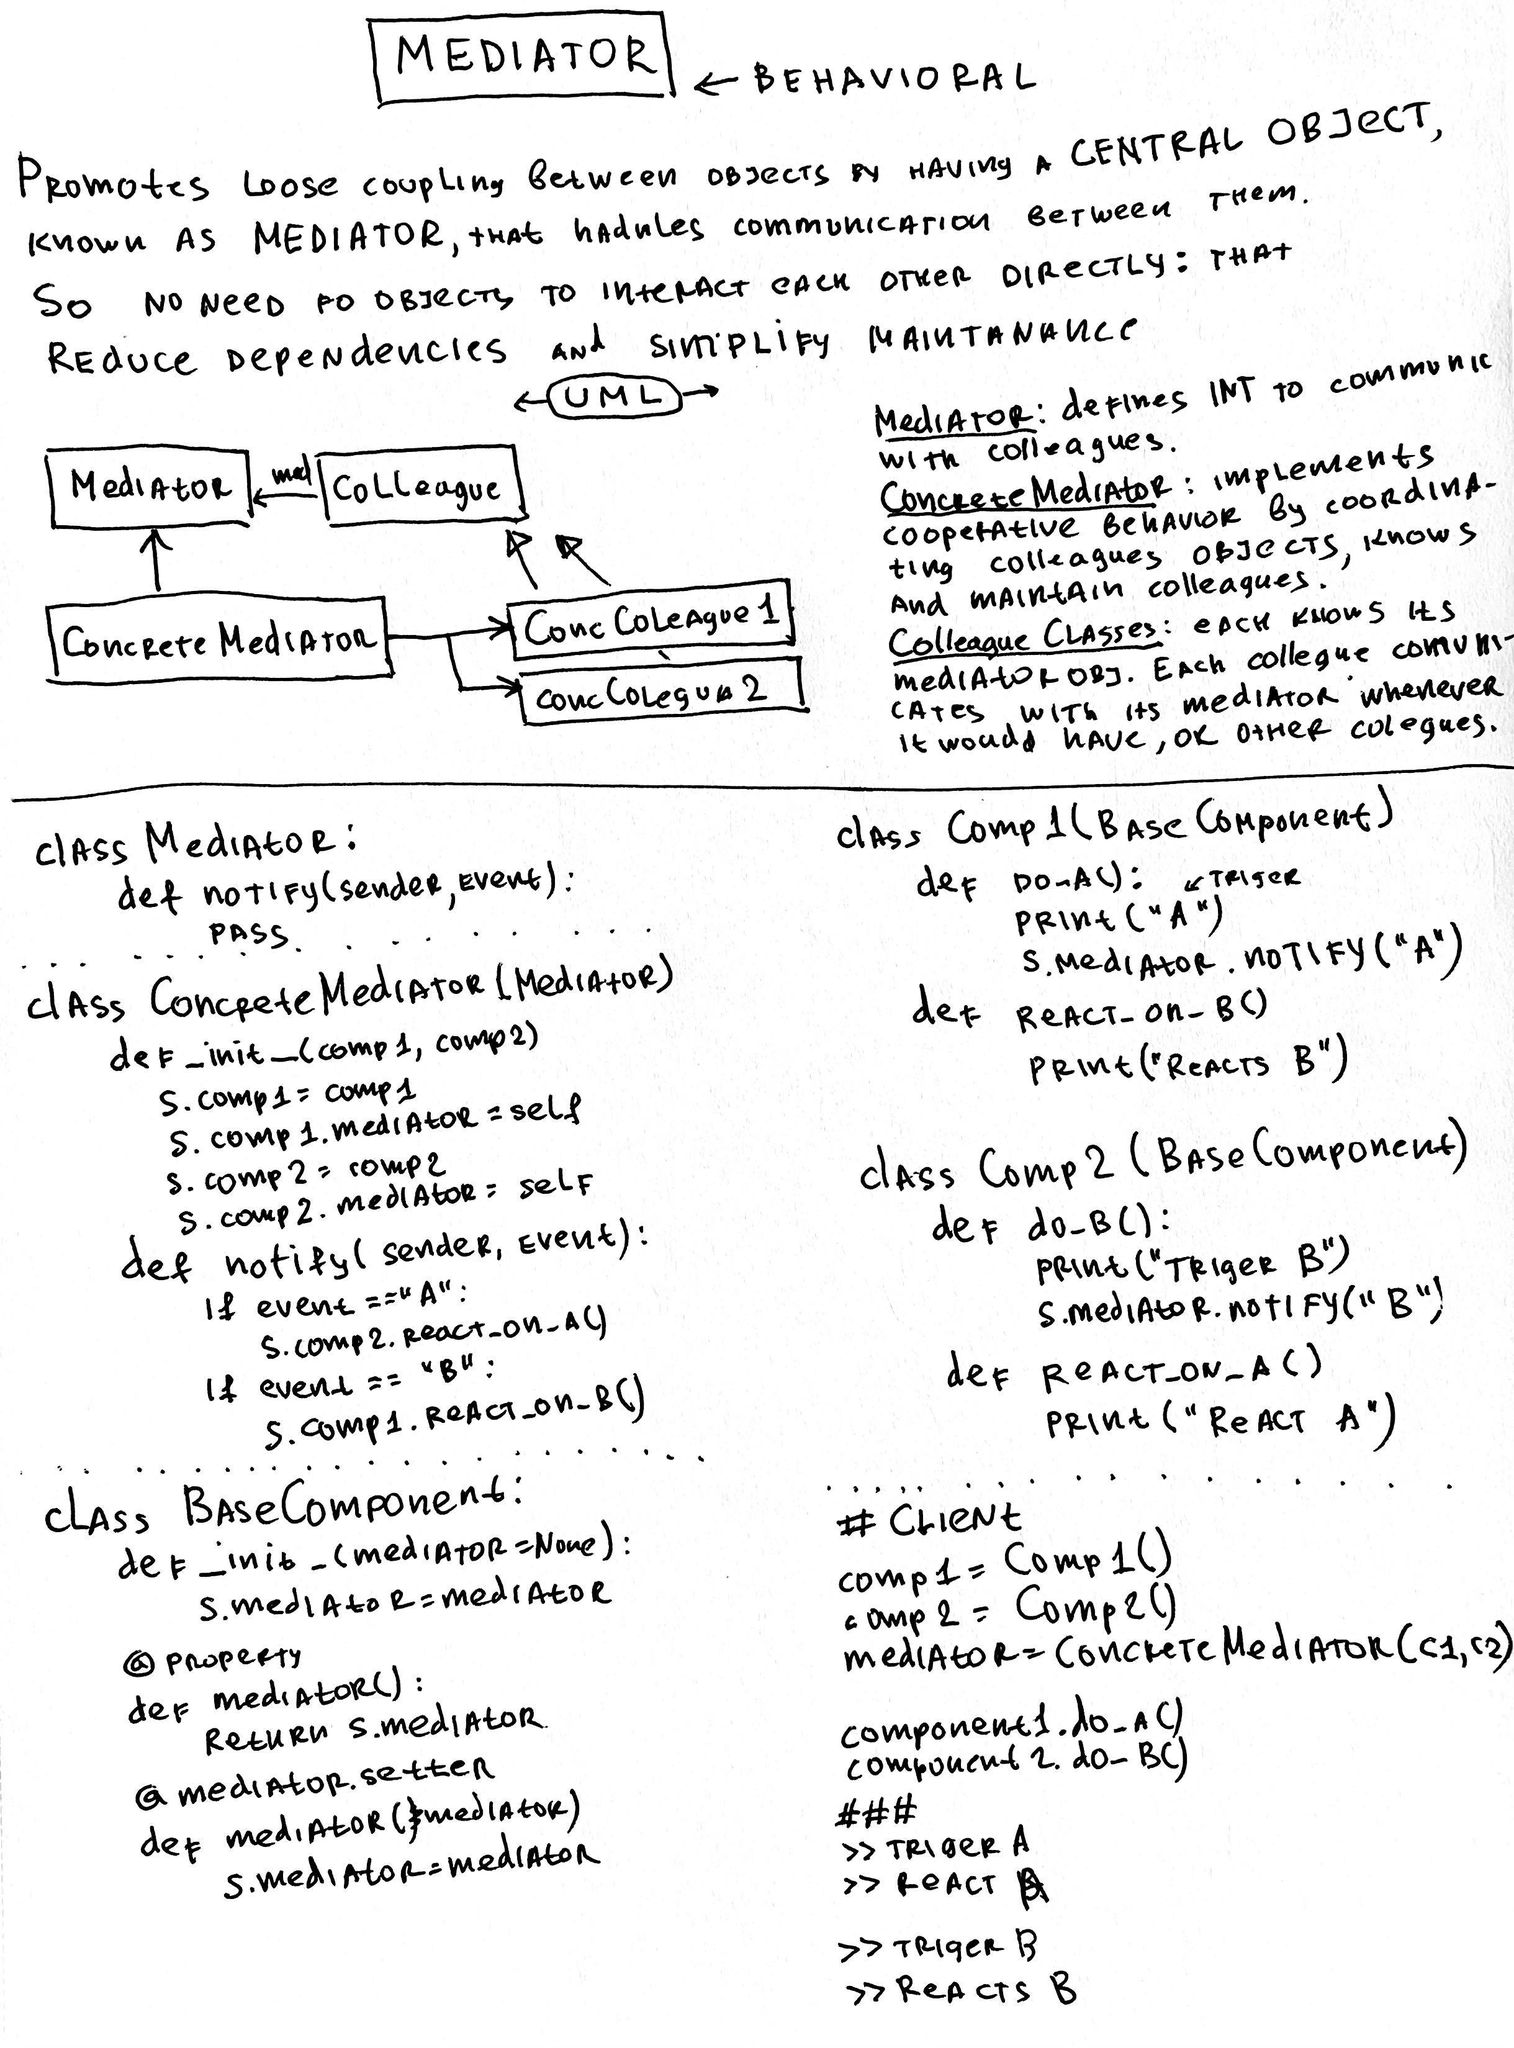 MEDIATOR
← BEHAVIORAL
PROMOTES LOOSE COUPLING BETWEEN OBJECTS BY HAVING A CENTRAL OBJECT,
KNOWN AS MEDIATOR, THAT HADNLES COMMUNICATION BETWEEN THEM.
SO NO NEED FO OBJECTS TO INTERACT EACH OTHER DIRECTLY: THAT
REDUCE DEPENDENCIES AND SIMPLIFY MAINTANANCE
← UML →
MEDIATOR
med
COLLEAGUE
CONCRETE MEDIATOR
CONC COLEAGUE 1
CONC COLEGUA 2
MEDIATOR: DEFINES INT TO COMMUNIC
WITH COLLEAGUES.
CONCRETE MEDIATOR: IMPLEMENTS
COOPERATIVE BEHAVIOR BY COORDINA-
TING COLLEAGUES OBJECTS, KNOWS
AND MAINTAIN COLLEAGUES.
COLLEAGUE CLASSES: EACH KNOWS ITS
MEDIATOR OBJ. EACH COLLEGUE COMUNI-
CATES WITH ITS MEDIATOR WHENEVER
IT WOULD HAVE, OR OTHER COLEGUES.
class Mediator:
def notify(sender, event):
pass
class ConcreteMediator(Mediator)
def _init_(comp1, comp2)
s.comp1 = comp1
s.comp1.mediator = self
s.comp2 = comp2
s.comp2.mediator = self
def notify(sender, event):
if event =="A":
s.comp2.react_on_A()
if event == "B":
s.comp1.react_on_B()
class BaseComponent:
def _init_(mediator=None):
s.mediator=mediator
@property
def mediator():
return s.mediator
@mediator.setter
def mediator(mediator)
s.mediator=mediator
class Comp1(BaseComponent)
def do_A(): ↙ TRIGER
print("A")
s.mediator.notify("A")
def react_on_B()
print("Reacts B")
class Comp2(BaseComponent)
def do_B():
print("Triger B")
s.mediator.notify("B")
def react_on_A()
print("React A")
# CLIENT
comp1 = Comp1()
comp2 = Comp2()
mediator=ConcreteMediator(c1,c2)
component1.do_A()
component2.do_B()
###
>> TRIGER A
>> REACT A
>> TRIGER B
>> REACTS B